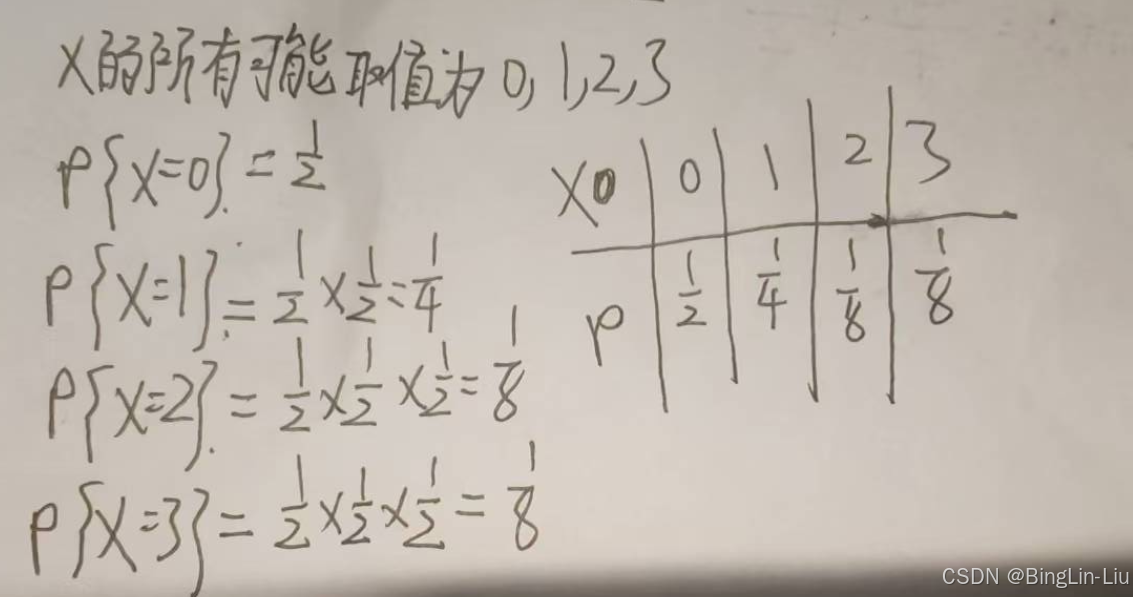 X的所有可能取值为 0, 1, 2, 3
P{X=0} = 1/2
P{X=1} = 1/2 × 1/2 = 1/4
P{X=2} = 1/2 × 1/2 × 1/2 = 1/8
P{X=3} = 1/2 × 1/2 × 1/2 = 1/8
X 0 1 2 3
P 1/2 1/4 1/8 1/8
CSDN @BingLin-Liu